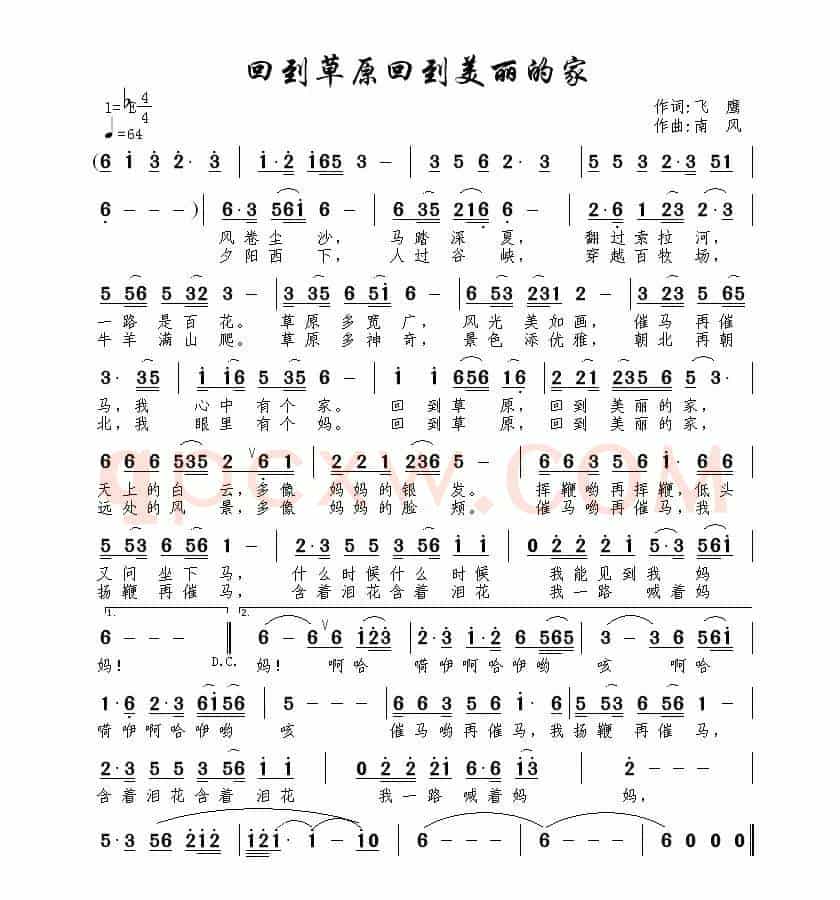 回到草原回到美丽的家
1=♭E 4/4
♩=64
作词:飞 鹰
作曲:南 风
(6 1 3 2· 3 | 1·2 165 3 - | 3 5 6 2·3 | 5 5 3 2·3 51
6 - - -) | 6·3 561 6 - | 6 35 216 6 - | 2·6 1 23 2·3
风卷尘沙, 马踏深夏, 翻过索拉河,
夕阳西下, 人过谷峡, 穿越百牧场,
5 56 5 32 3 - | 3 35 6 51 6 - | 6 53 231 2 - | 3 23 5 65
一路是百花。草原多宽广, 风光美如画, 催马再催
牛羊满山爬。草原多神奇, 景色添优雅, 朝北再朝
3· 35 | 1 16 5 35 6 - | 1 1 656 16 | 2 21 235 6 5 3·
马,我 心中有个家。 回到草原,回到美丽的家,
北,我 眼里有个妈。 回到草原,回到美丽的家,
6 6 6 535 2 ∨ 6 1 | 2 2 1 236 5 - | 6 6 3 5 6 1· 6 6
天上的白云,多像妈妈的银发。挥鞭哟再挥鞭,低头
远处的风景,多像妈妈的脸颊。催马哟再催马,我
5 53 6 56 1 - | 2·3 5 5 3 56 1 1 | 0 2 2 2 1 5·3 561
又问坐下马, 什么时候什么时候 我能见到我妈
扬鞭再催马, 含着泪花含着泪花 我一路喊着妈
1. 2.
6 - - - ‖ 6 - 6 ∨ 6 123 | 2·3 1·2 6 565 | 3 - 3 6 561
妈! D.C. 妈! 啊哈 嗬咿啊哈咿哟 咳 啊哈
1·6 2·3 6156 | 5 - - - | 6 6 3 5 6 1· 6 | 5 53 6 56 1 -
嗬咿啊哈咿哟 咳 催马哟再催马,我扬鞭再催马,
2·3 5 5 3 56 1 1 | 0 2 2 2 1 6 - 13 | 2 - - -
含着泪花含着泪花 我一路喊着妈 妈,
5·3 56 212 | 121· 1 - 10 | 6 - - - | 6 - - - | 6 0 0 0 ‖
qpcxw.COM